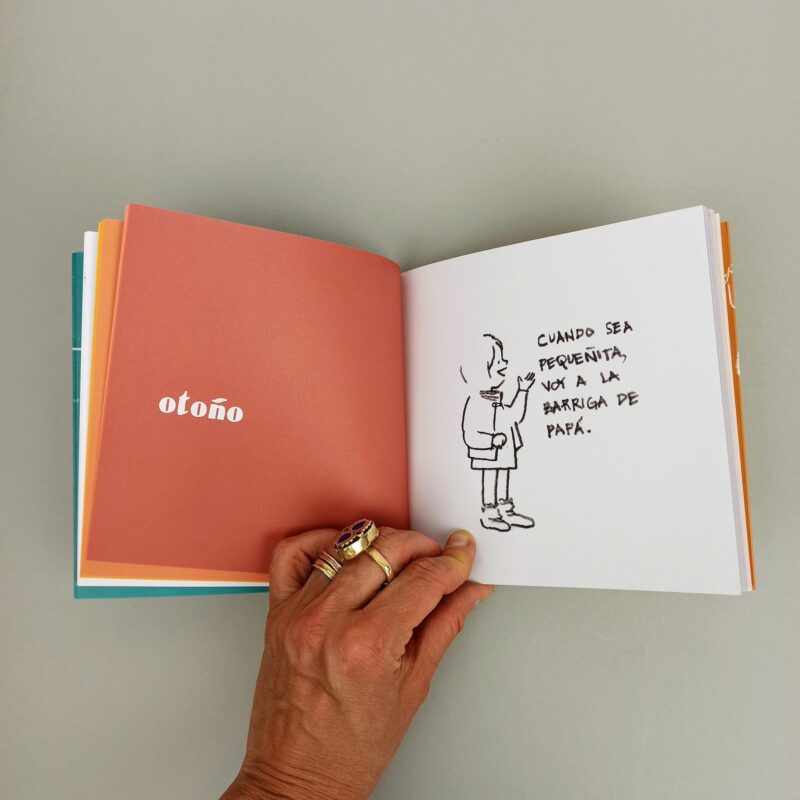 otoño
CUANDO SEA
PEQUEÑITA,
VOY A LA
BARRIGA DE
PAPÁ.